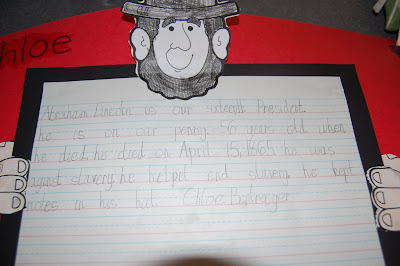 Chloe
Abraham Lincoln is our sixteenth President
he is on our penny. 56 years old when
he died, he died on April 15, 1865 he was
against slavery, he helpet end slavery, he kept
notes in his hat. Chloe